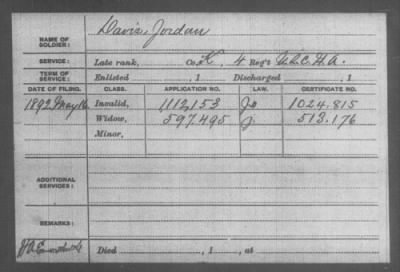 NAME OF SOLDIER: Davis, Jordan
SERVICE: Late rank, Co. K, 4 Reg't U.S.C.H.A.
TERM OF SERVICE: Enlisted , 1 Discharged , 1
DATE OF FILING. CLASS. APPLICATION NO. LAW. CERTIFICATE NO.
1892 May 16 Invalid, 1112,153 1024.815
Widow, 597.495 J. 513.176
Minor,
ADDITIONAL SERVICES:
REMARKS:
Died , 1 , at